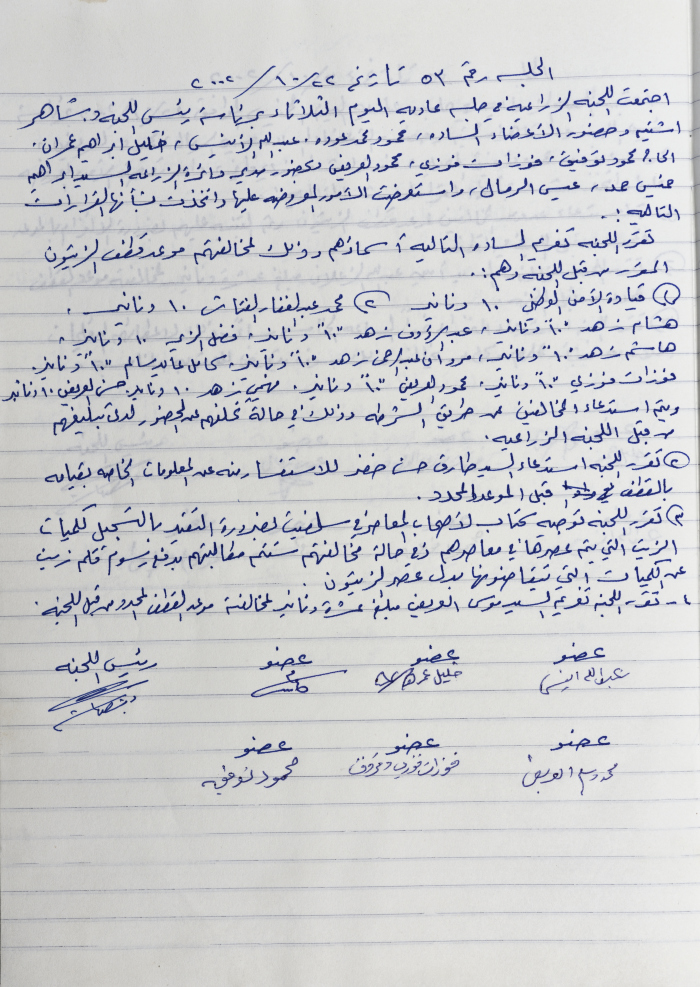 الجلسه رقم ٥٣ تاريخ ٢٢/١٠/٢٠٠٢
اجتمعت اللجنه الزراعيه في جلسه عاديه اليوم الثلاثاء برئاسة رئيس اللجنه وشاهر
اشتيه وحضور الأعضاء الساده، محمود محمد عوده، عبدالله الأنيس، خليل ابراهيم عمران،
الحاج محمود توفيق، فوزات فوزي، محمود العريض وبحضور مدير دائرة الزراعه السيد ابراهيم
حمد، عيسى الرمال، واستعرضت الأمور المعروضه عليها واتخذت بشأنها القرارات
التاليه:.
تقرر اللجنه تغريم الساده التاليه أسماؤهم وذلك لمخالفتهم موعد قطف الزيتون
المقرر من قبل اللجنه وهم:.
١ قيادة الأمن الوطني ١٠ دنانير ٢ محمد عبدالغفار ١٠ دنانير،
هشام زهد "١٠" دنانير، عبدالرؤوف زهد "١٠" دنانير، فضل ١٠ دنانير،
هاشم زهد "١٠" دنانير، مروان عبدالرحمن زهد "١٠" دنانير، كامل عايد سالم "١٠" دنانير.
فوزات فوزي "١٠" دنانير، محمود العريض "١٠" دنانير، زهد ١٠ دنانير، حسن العريض ١٠ دنانير
ويتم استدعاء المخالفين عن طريق الشرطه وذلك في حالة تخلفهم عن الحضور لدى تبليغهم
من قبل اللجنه الزراعيه.
٢ تقرر اللجنه استدعاء السيد طارق حسن خضر للاستفسار منه عن المعلومات الخاصه بقيامه
بالقطف قبل الموعد المحدد.
٣ تقرر اللجنه توجيه كتاب لأصحاب المعاصر في سلفيت لضرورة التقيد بالتسجيل لكميات
الزيت التي يتم عصرها في معاصرهم وفي حالة مخالفتهم ستتم مطالبتهم بدفع رسوم قلم زيت
عن الكميات التي يتقاضونها بدل عصر الزيتون.
٤- تقرر اللجنه تغريم السيد موسى العريض مبلغ عشرة دنانير لمخالفته موعد القطف المحدد من قبل اللجنه.
عضو عضو عضو رئيس اللجنه
عبدالله انيس خليل عمران
عضو عضو عضو
العريض فوزات فوزي محمود توفيق